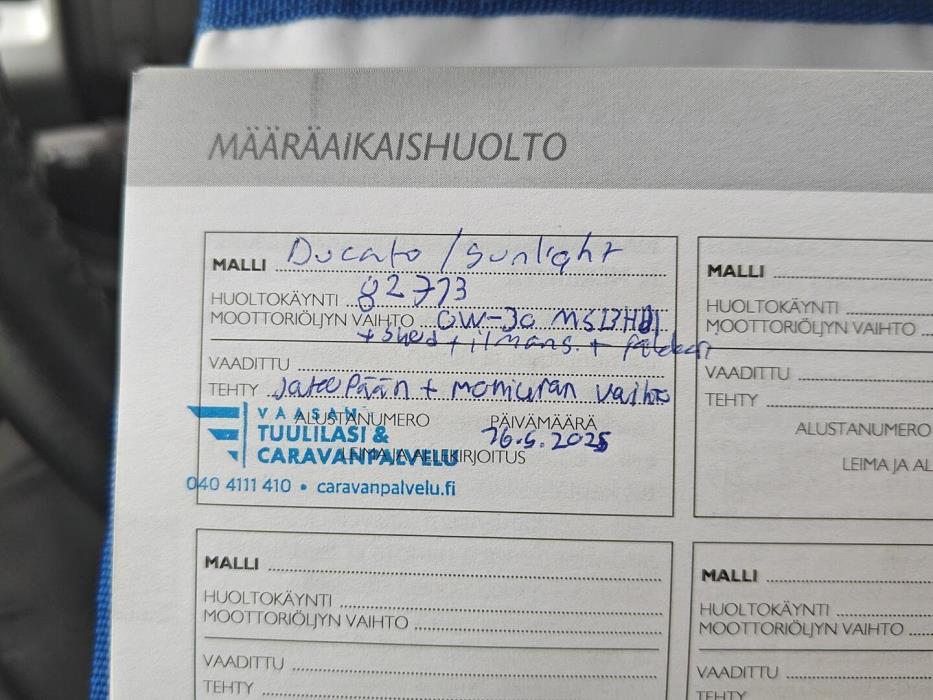 MÄÄRÄAIKAISHUOLTO
MALLI Ducato / Sunlight
HUOLTOKÄYNTI 82773
MOOTTORIÖLJYN VAIHTO 0W-30
+ ilmans. +
VAADITTU
TEHTY + vaihto
ALUSTANUMERO PÄIVÄMÄÄRÄ
26.5.2025
LEIMA JA ALLEKIRJOITUS
VAASAN
TUULILASI &
CARAVANPALVELU
040 4111 410 • caravanpalvelu.fi
MALLI
HUOLTOKÄYNTI
MOOTTORIÖLJYN VAIHTO
VAADITTU
TEHTY
ALUSTANUMERO
LEIMA JA AL
MALLI
HUOLTOKÄYNTI
MOOTTORIÖLJYN VAIHTO
VAADITTU
TEHTY
MALLI
HUOLTOKÄYNTI
MOOTTORIÖLJYN VAIHTO
VAADITTU
TEHTY